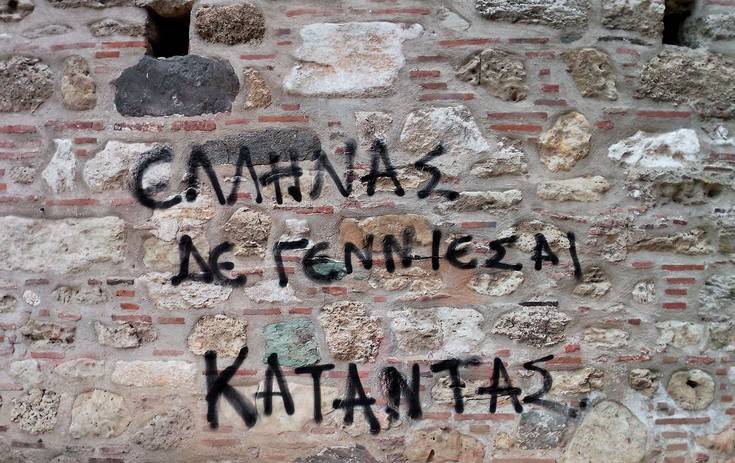 ΕΛΛΗΝΑΣ
ΔΕ ΓΕΝΝΙΕΣΑΙ
ΚΑΤΑΝΤΑΣ